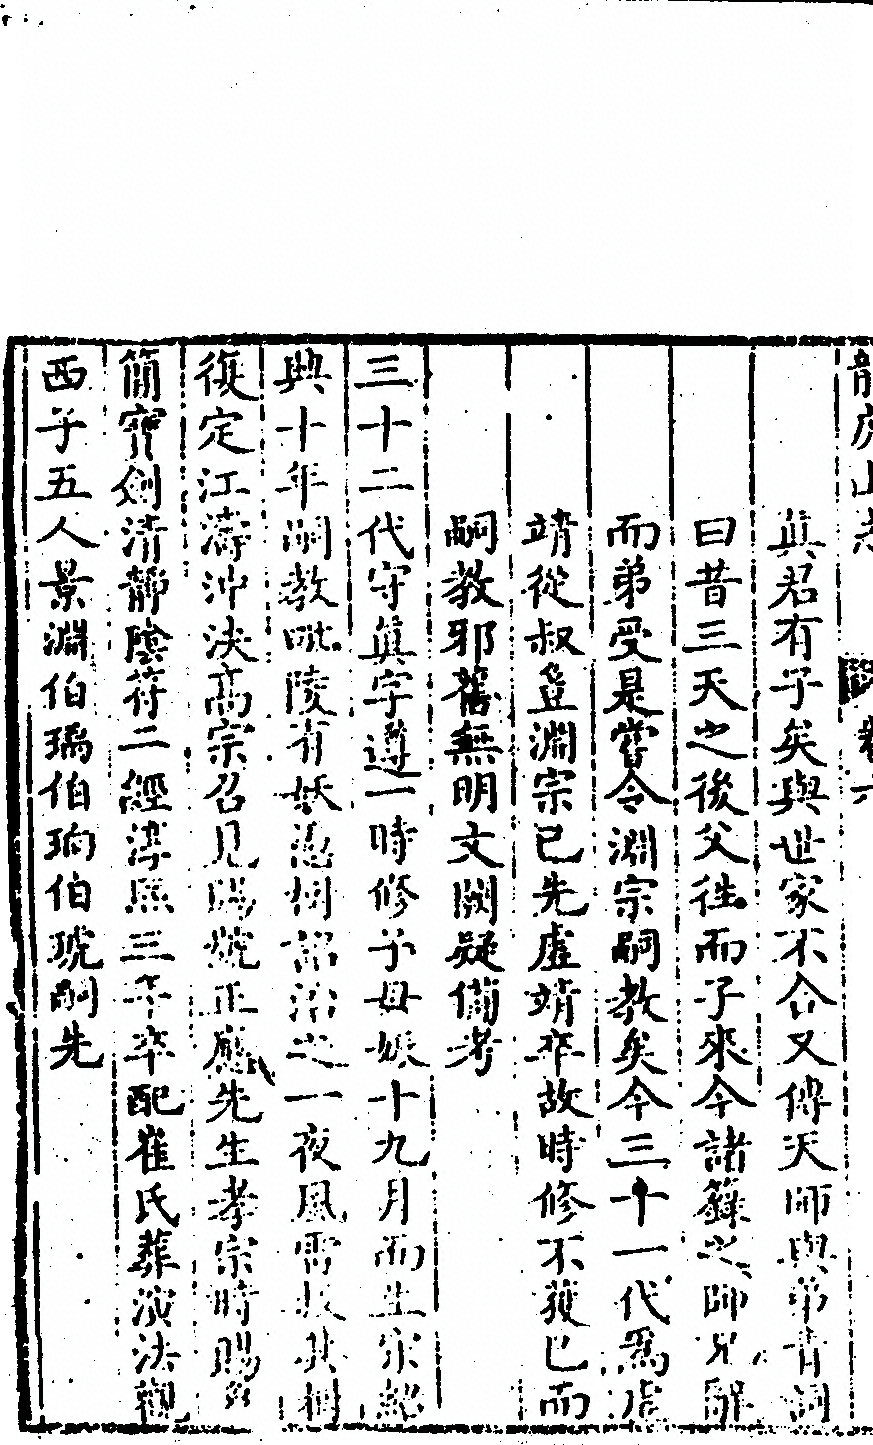 龍虎山志 卷六
眞君有子矣與世家不合又傳天師與弟青詞
曰昔三天之後父徃而子來今諸籙之師兄辭
而弟受是嘗令淵宗嗣教矣今三十一代爲虗
靖從叔豈淵宗已先虗靖卒故時修不獲已而
嗣教邪舊無明文闕疑備考
三十二代守眞字遵一時修子母娠十九月而生宋紹
興十年嗣教毗陵有妖憑樹詔治之一夜風雷拔其樹
復定江濤沖决高宗召見賜號正應先生孝宗時賜
簡寶劍清靜陰符二經淳熈三年卒配崔氏葬演法觀
西子五人景淵伯瑀伯珦伯琥嗣先